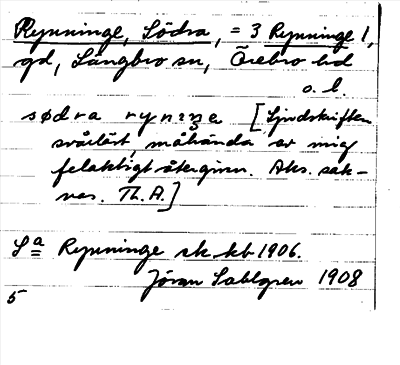 Rynninge, Södra, = 3 Rynninge 1,
gd, Längbro sn, Örebro hd
o. l.
sødra rynıŋe [Ljudskriften
svårläst, måhända av mig
felaktigt återgiven. Aks. sak-
nas. Th. A.]
Sa Rynninge sk. kb 1906.
Jöran Sahlgren 1908
5